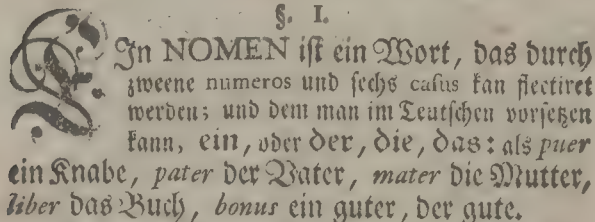 §. I.
EJn NOMEN iſt ein Wort, das durch
zweene numeros und ſechs caſus kan flectiret
werden; und dem man im Teutſchen vorſetzen
kann, ein, oder der, die, das: als puer
ein Knabe, pater der Vater, mater die Mutter,
liber das Buch, bonus ein guter, der gute.